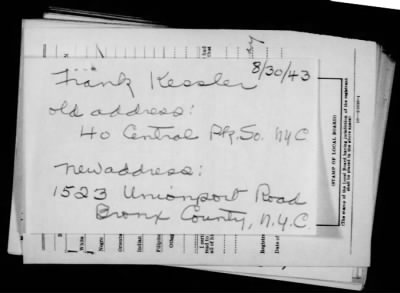 8/30/43
Frank Kessler
old address:
40 Central Pk. So. NYC
new address:
1523 Unionport Road
Bronx County, N.Y.C.
STAMP OF LOCAL BOARD
White
Negro
Indian
Filipino
Date of